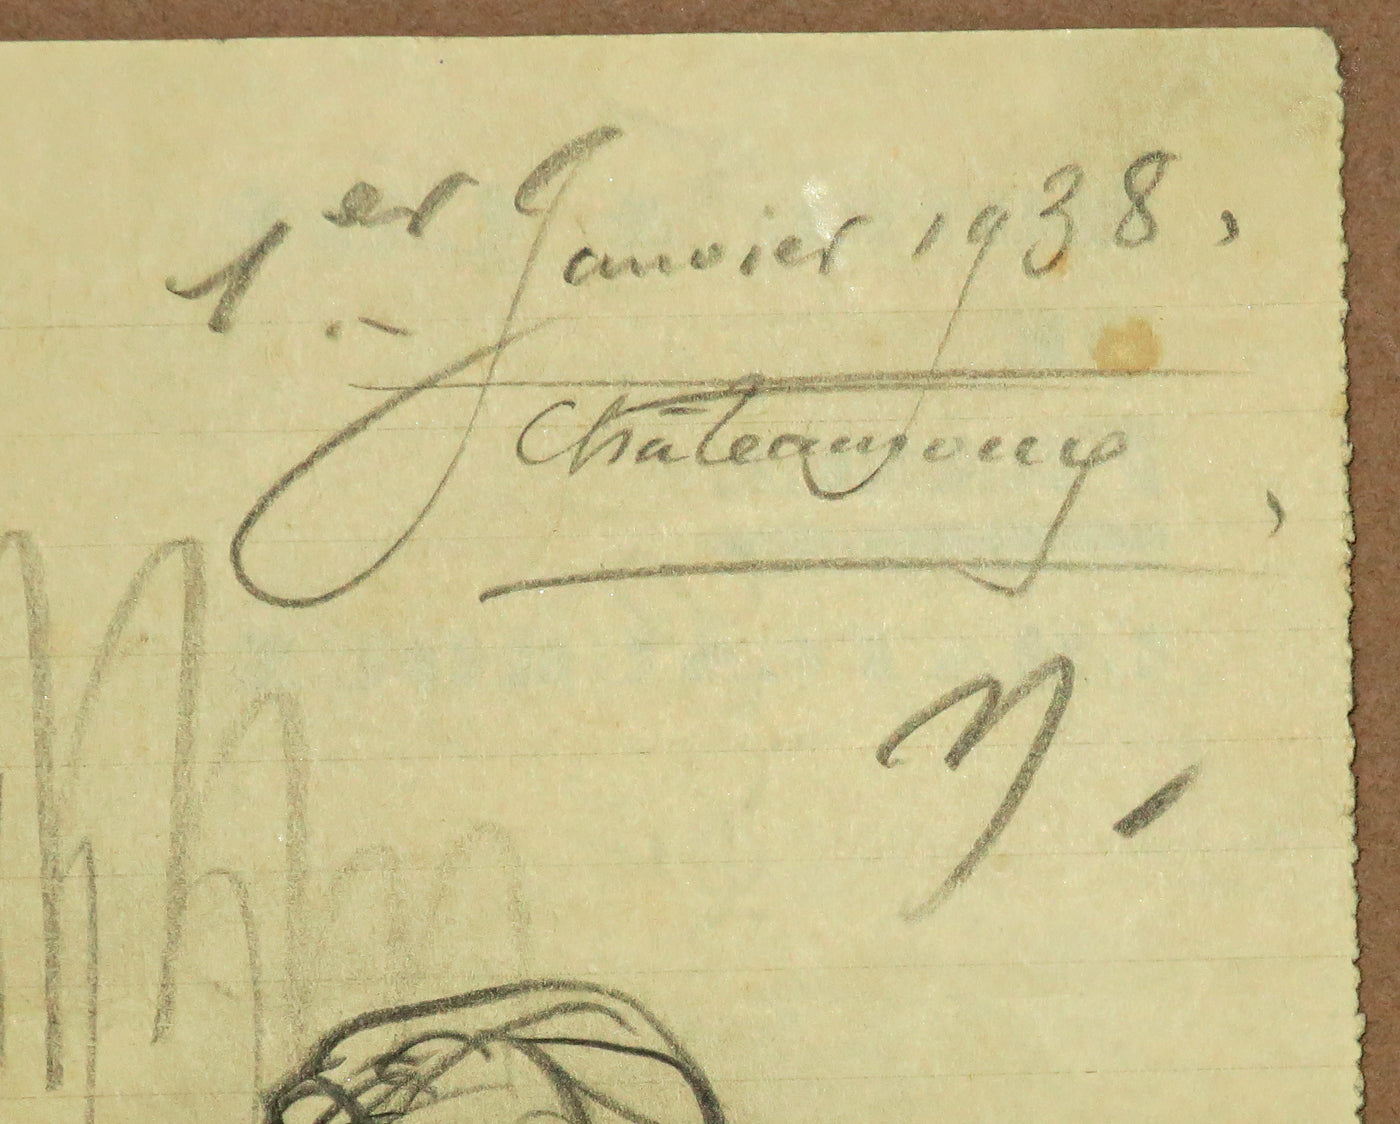 1er Janvier 1938,
Châteauroux,